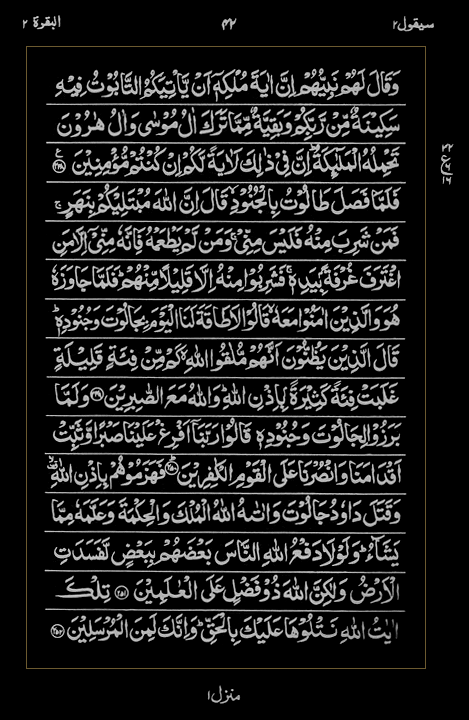 سيقول٢ ٤٢ البقرة ٢
وَقَالَ لَهُمْ نَبِيُّهُمْ اِنَّ اٰيَةَ مُلْكِهٖۤ اَنْ يَّاْتِيَكُمُ التَّابُوْتُ فِيْهِ
سَكِيْنَةٌ مِّنْ رَّبِّكُمْ وَبَقِيَّةٌ مِّمَّا تَرَكَ اٰلُ مُوْسٰى وَاٰلُ هٰرُوْنَ
تَحْمِلُهُ الْمَلٰٓئِكَةُ ؕ اِنَّ فِيْ ذٰلِكَ لَاٰيَةً لَّكُمْ اِنْ كُنْتُمْ مُّؤْمِنِيْنَ ﴿٢٤٨﴾ ع
فَلَمَّا فَصَلَ طَالُوْتُ بِالْجُنُوْدِ ۙ قَالَ اِنَّ اللّٰهَ مُبْتَلِيْكُمْ بِنَهَرٍ ۚ
فَمَنْ شَرِبَ مِنْهُ فَلَيْسَ مِنِّيْ ۚ وَمَنْ لَّمْ يَطْعَمْهُ فَاِنَّهٗ مِنِّيْۤ اِلَّا مَنِ
اغْتَرَفَ غُرْفَةًۢ بِيَدِهٖ ۚ فَشَرِبُوْا مِنْهُ اِلَّا قَلِيْلًا مِّنْهُمْ ؕ فَلَمَّا جَاوَزَهٗ
هُوَ وَالَّذِيْنَ اٰمَنُوْا مَعَهٗ ۙ قَالُوْا لَا طَاقَةَ لَنَا الْيَوْمَ بِجَالُوْتَ وَجُنُوْدِهٖ ؕ
قَالَ الَّذِيْنَ يَظُنُّوْنَ اَنَّهُمْ مُّلٰقُوا اللّٰهِ ۙ كَمْ مِّنْ فِئَةٍ قَلِيْلَةٍ
غَلَبَتْ فِئَةً كَثِيْرَةًۢ بِاِذْنِ اللّٰهِ ؕ وَاللّٰهُ مَعَ الصّٰبِرِيْنَ ﴿٢٤٩﴾ وَلَمَّا
بَرَزُوْا لِجَالُوْتَ وَجُنُوْدِهٖ قَالُوْا رَبَّنَاۤ اَفْرِغْ عَلَيْنَا صَبْرًا وَّثَبِّتْ
اَقْدَامَنَا وَانْصُرْنَا عَلَى الْقَوْمِ الْكٰفِرِيْنَ ؕ ﴿٢٥٠﴾ فَهَزَمُوْهُمْ بِاِذْنِ اللّٰهِ
وَقَتَلَ دَاوٗدُ جَالُوْتَ وَاٰتٰىهُ اللّٰهُ الْمُلْكَ وَالْحِكْمَةَ وَعَلَّمَهٗ مِمَّا
يَشَآءُ ؕ وَلَوْلَا دَفْعُ اللّٰهِ النَّاسَ بَعْضَهُمْ بِبَعْضٍ لَّفَسَدَتِ
الْاَرْضُ وَلٰكِنَّ اللّٰهَ ذُوْ فَضْلٍ عَلَى الْعٰلَمِيْنَ ﴿٢٥١﴾ تِلْكَ
اٰيٰتُ اللّٰهِ نَتْلُوْهَا عَلَيْكَ بِالْحَقِّ ؕ وَاِنَّكَ لَمِنَ الْمُرْسَلِيْنَ ﴿٢٥٢﴾
منزل١